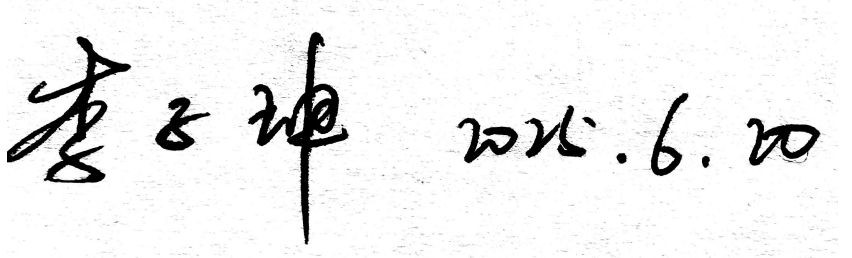 李子坤 2025.6.20